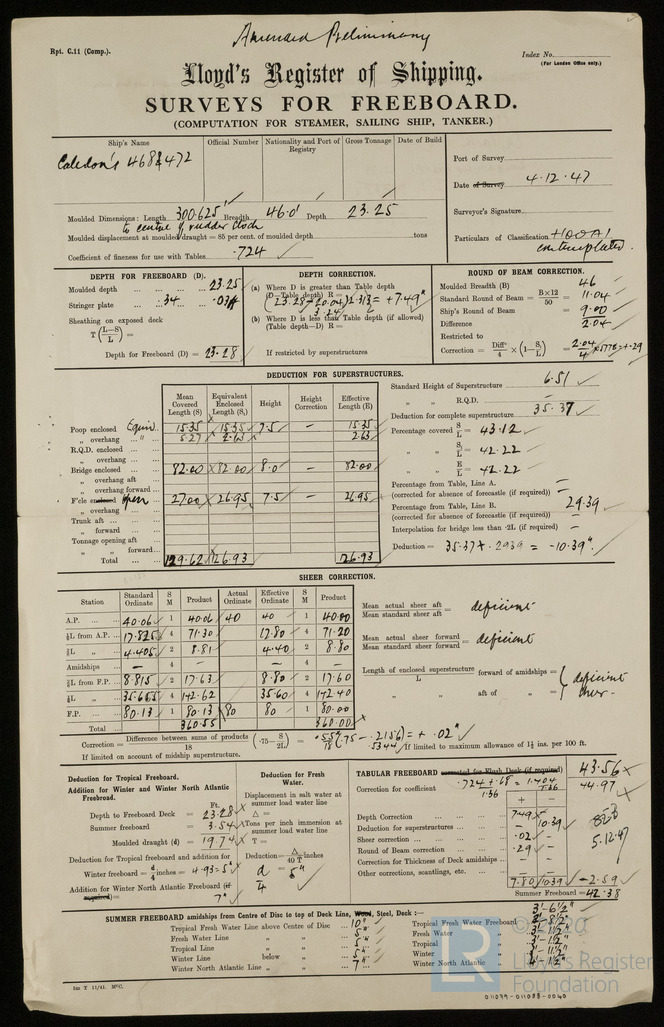 Amended Preliminary
Rpt. C.11 (Comp.).
Index No.
(For London Office only.)
Lloyd's Register of Shipping.
SURVEYS FOR FREEBOARD.
(COMPUTATION FOR STEAMER, SAILING SHIP, TANKER.)
Ship's Name Official Number Nationality and Port of Registry Gross Tonnage Date of Build
Caledon's 468 & 472
Port of Survey
Date of Survey 4.12.47
Surveyor's Signature
Particulars of Classification +100A1
contemplated.
Moulded Dimensions: Length 300.625' Breadth 46.0' Depth 23.25
to centre of rudder stock
Moulded displacement at moulded draught = 85 per cent. of moulded depth tons
Coefficient of fineness for use with Tables .724
DEPTH FOR FREEBOARD (D).
Moulded depth ... 23.25
Stringer plate ... .34 .03
Sheathing on exposed deck
T (L-S/L) =
Depth for Freeboard (D) = 23.28
DEPTH CORRECTION.
(a) Where D is greater than Table depth
(D-Table depth) R =
(23.28-20.04) 2.313 = +7.49"
3.24
(b) Where D is less than Table depth (if allowed)
(Table depth-D) R =
If restricted by superstructures
ROUND OF BEAM CORRECTION.
Moulded Breadth (B) 46
Standard Round of Beam = B×12/50 = 11.04
Ship's Round of Beam = 9.00
Difference 2.04
Restricted to
Correction = Diffce/4 × (1-S₁/L) = 2.04/4 × .5778 = +.29
DEDUCTION FOR SUPERSTRUCTURES.
Mean Covered Length (S) Equivalent Enclosed Length (S₁) Height Height Correction Effective Length (E)
Poop enclosed Equiv. 15.35 15.35 7.5 – 15.35
„ overhang 5.27 2.63 2.63
R.Q.D. enclosed
„ overhang
Bridge enclosed 82.00 82.00 8.0 – 82.00
„ overhang aft
„ overhang forward
F'cle enclosed open 27.00 26.95 7.5 – 26.95
„ overhang
Trunk aft
„ forward
Tonnage opening aft
„ „ forward
Total 129.62 126.93 126.93
Standard Height of Superstructure 6.51
„ „ R.Q.D. –
Deduction for complete superstructure 35.37
Percentage covered S/L = 43.12
„ „ S₁/L = 42.22
„ „ E/L = 42.22
Percentage from Table, Line A.
(corrected for absence of forecastle (if required)) –
Percentage from Table, Line B. 29.39
(corrected for absence of forecastle (if required)) –
Interpolation for bridge less than ·2L (if required) –
Deduction = 35.37 × .2939 = -10.39".
SHEER CORRECTION.
Station Standard Ordinate S M Product Actual Ordinate Effective Ordinate S M Product
A.P. 40.06 1 40.06 40 40 1 40.00
⅙L from A.P. 17.825 4 71.30 17.80 4 71.20
⅓L „ 4.405 2 8.81 4.40 2 8.80
Amidships – 4 – 4 –
⅓L from F.P. 8.815 2 17.63 8.80 2 17.60
⅙L „ 35.655 4 142.62 35.60 4 142.40
F.P. 80.13 1 80.13 80 80 1 80.00
Total 360.55 360.00
Mean actual sheer aft / Mean standard sheer aft = deficient
Mean actual sheer forward / Mean standard sheer forward = deficient
Length of enclosed superstructure / L forward of amidships = deficient
„ „ aft of „ = sheer.
Correction = Difference between sums of products / 18 (·75 - S/2L) = .55/18 (.75 - .2156) = + .02"
.5344
If limited on account of midship superstructure.
If limited to maximum allowance of 1½ ins. per 100 ft.
Deduction for Tropical Freeboard.
Addition for Winter and Winter North Atlantic Freeboard.
Ft.
Depth to Freeboard Deck = 23.28
Summer freeboard = 3.54
Moulded draught (d) = 19.74
Deduction for Tropical freeboard and addition for
Winter freeboard = d/4 inches = 4.93 = 5"
Addition for Winter North Atlantic Freeboard (if required) =
7"
Deduction for Fresh Water.
Displacement in salt water at summer load water line
Δ =
Tons per inch immersion at summer load water line
T =
Deduction = Δ/40 T inches
d/4 = 5"
TABULAR FREEBOARD corrected for Flush Deck (if required) 43.56
Correction for coefficient .724 + .68 / 1.36 = 1.404 / 1.36 44.97
+ –
Depth Correction 7.49 –
Deduction for superstructures – 10.39
Sheer correction .02 –
Round of Beam correction .29 –
Correction for Thickness of Deck amidships – –
Other corrections, scantlings, etc. – –
7.80 10.39 -2.59
Summer Freeboard = 42.38
5.12.47
SUMMER FREEBOARD amidships from Centre of Disc to top of Deck Line, Wood, Steel, Deck :— 3'-6½"
Tropical Fresh Water Line above Centre of Disc 10"
Fresh Water Line „ „ 5"
Tropical Line „ „ 5"
Winter Line below „ 5"
Winter North Atlantic Line „ „ 7"
Tropical Fresh Water Freeboard 2'-8½"
Fresh Water „ 3'-1½"
Tropical „ 3'-1½"
Winter „ 3'-11½"
Winter North Atlantic „ 4'-1½"
5m T 11/41. McC.
LR
© 2020
Lloyd's Register
Foundation
011099-011088-0060